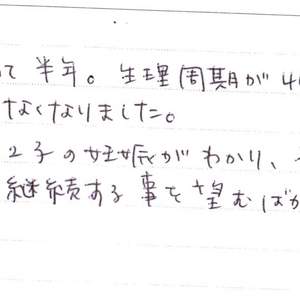 て半年。生理周期が4
なくなりました。
2子の妊娠がわかり、
継続する事を望むばか